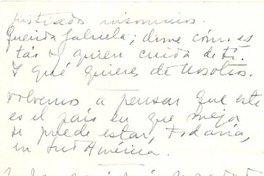 postrado insomnios.
Querida Gabriela; dime cómo es
tás y quien cuida de tí.
Y qué quieres de nosotros.
Volvemos a pensar que este
es el país en que mejor
se puede estar, todavía,
en Sud América.